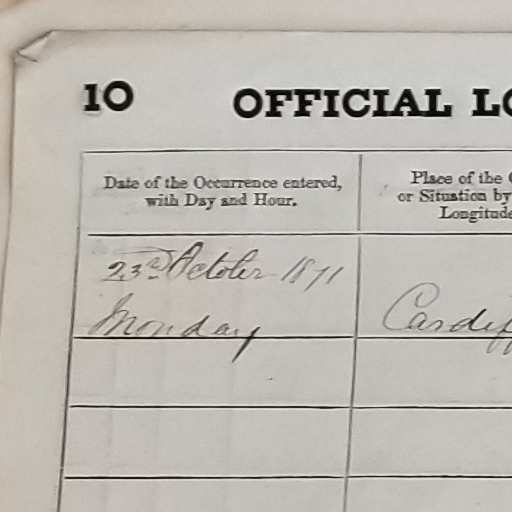 10 OFFICIAL LO
Date of the Occurrence entered,
with Day and Hour.
Place of the
or Situation by
Longitude
23rd October 1871
Monday
Cardiff